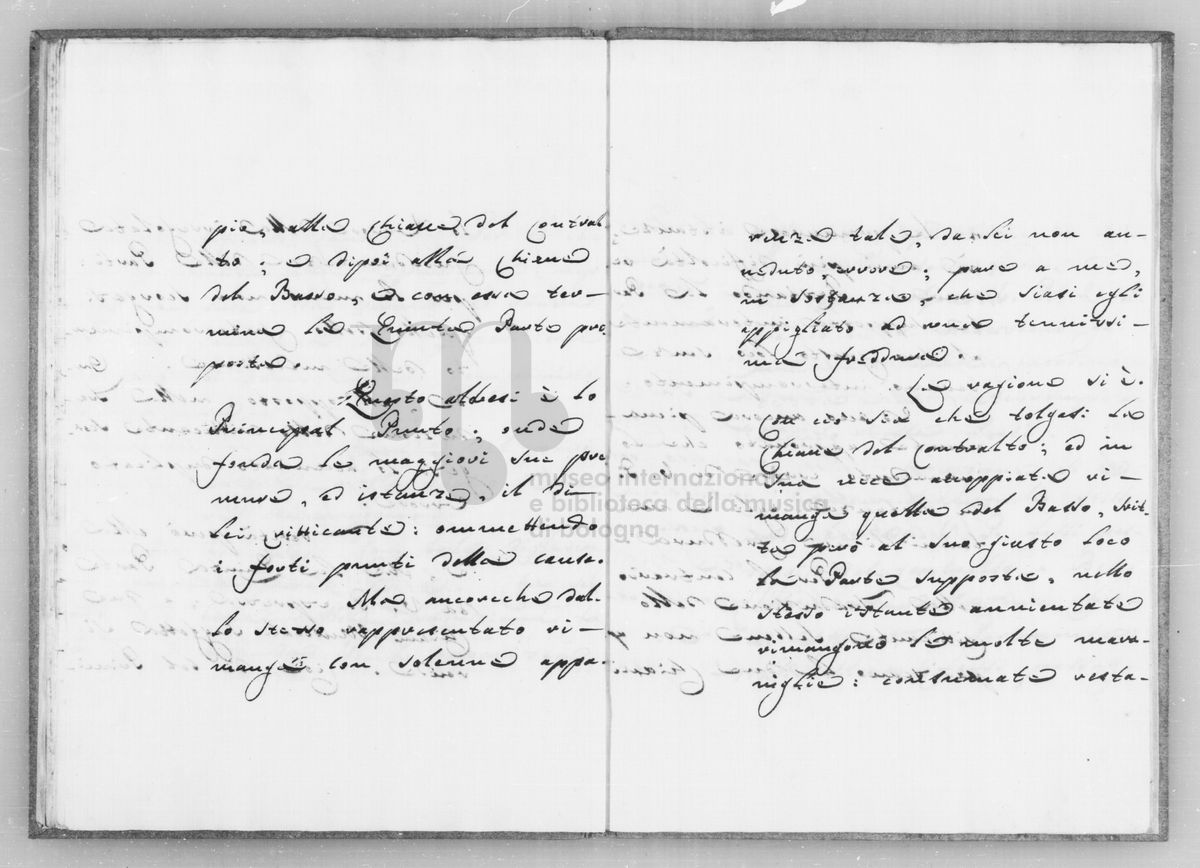 pia, alla Chiave del Contral-
to; e dipoi alla Chiave
del Basso, e con essa ter-
mina la Quinta Parte pro
posta.
Questo altresi è lo
Principal Punto; onde
fonda le maggiori sue pre
mure, ed istanze, il di
Lei criticante: ommettendo
i forti punti della causa.
Ma ancorche dal-
lo stesso rappresentato ri-
manga con solenne appa-
renza tale, da Lei non av-
veduto, errore; pare a me,
in sostanza, che siasi egli
appigliato ad una tenuissi-
ma freddura.
La ragione si è.
Con ciò sia che tolgasi la
Chiave del Contralto; ed in
Sua vece accoppiata ri-
manga quella del Basso, scrit-
ta però al suo giusto loco
la Parte supposta, nello
stesso istante annientate
rimangono le molte mara-
viglie: consumate resta-
museo internazionale
e biblioteca della musica
di bologna